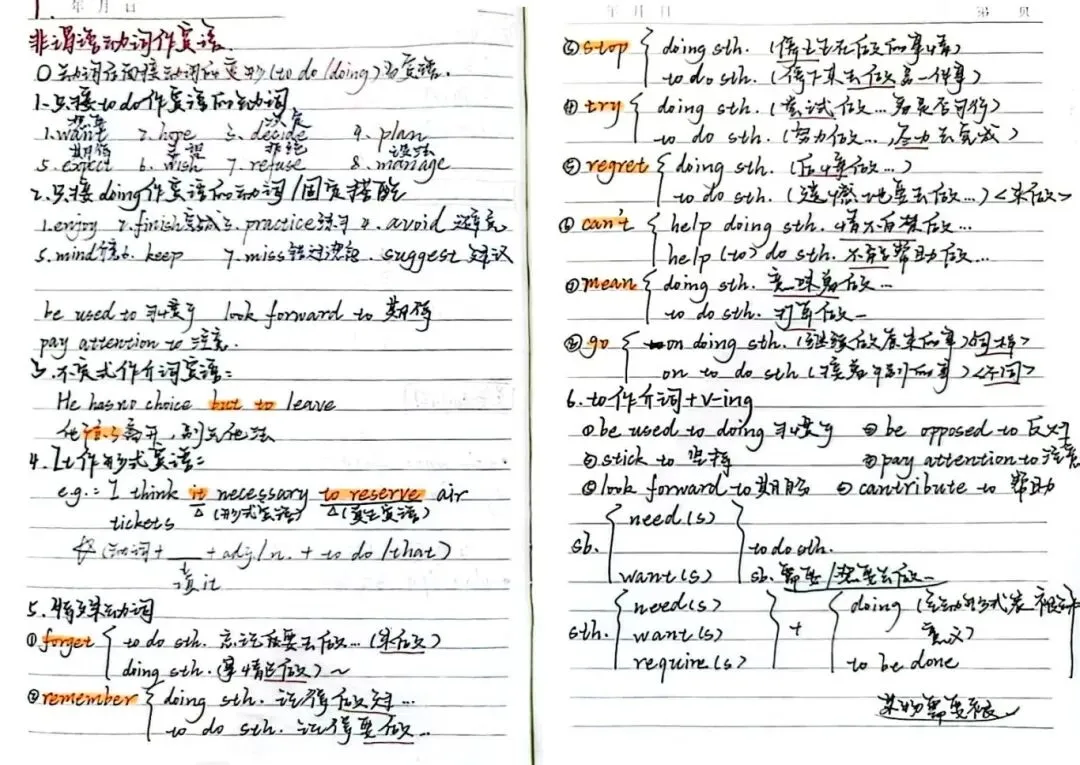 1.
年 月 日
非谓语动词作宾语
动词后面接动词的变形(to do/doing)为宾语.
1.只接to do作宾语的动词
想要 决定
1.want 2.hope 3.decide 4.plan
期待 希望 拒绝 设法
5.expect 6.wish 7.refuse 8.manage
2.只接doing作宾语的动词/固定搭配
1.enjoy 2.finish完成3.practice练习 4.avoid 避免
5.mind 6.keep 7.miss错过 suggest 建议
be used to 习惯于 look forward to 期待
pay attention to 注意.
3.不定式作介词宾语:
He has no choice but to leave
他 离开,别无他法
4.It作形式宾语:
e.g.: I think it necessary to reserve air
(形式宾语) (真正宾语)
tickets
(动词+ ___ +adj./n. + to do/that)
填it
5.特殊动词
①forget to do sth. 忘记要去做…(未做)
doing sth.(事情已做)~
②remember doing sth. 记得做过…
to do sth. 记得要做…
年 月 日 第 页
③stop doing sth. (停止正在做的事情)
to do sth. (停下来去做另一件事)
④try doing sth. (尝试做…看是否可行)
to do sth. (努力做…,尽力去完成)
⑤regret doing sth. (后悔做…)
to do sth. (遗憾地要去做…)<未做>
⑥can't help doing sth. 情不自禁做…
help (to) do sth. 不能帮助做…
⑦mean doing sth. 意味着做…
to do sth. 打算做…
⑧go on doing sth. (继续做原来的事)<同样>
on to do sth (接着干别的事)<不同>
6.to作介词+v-ing
①be used to doing 习惯于 ②be opposed to 反对
③stick to 坚持 ④pay attention to 注意
⑤look forward to 期盼 ⑥cantribute to 帮助
sb. need(s) to do sth.
want(s) sb. 需要/想要去做…
sth. need(s) + doing (主动形式表被动
want(s) 意义)
require(s) to be done
某物需要被…